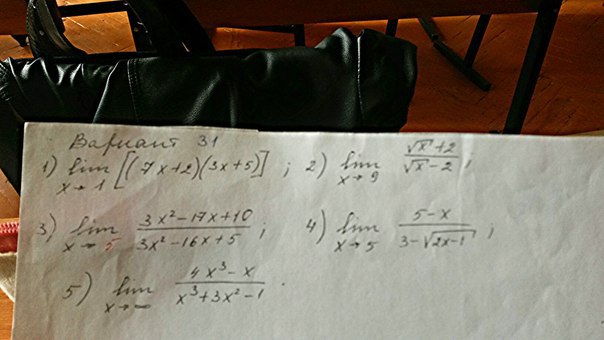 Вариант 31
1) lim x→1 [(7x+2)(3x+5)] ; 2) lim x→9 (√x+2)/(√x-2) ,
3) lim x→5 (3x²-17x+10)/(3x²-16x+5) ; 4) lim x→5 (5-x)/(3-√(2x-1)) ;
5) lim x→∞ (4x³-x)/(x³+3x²-1) .